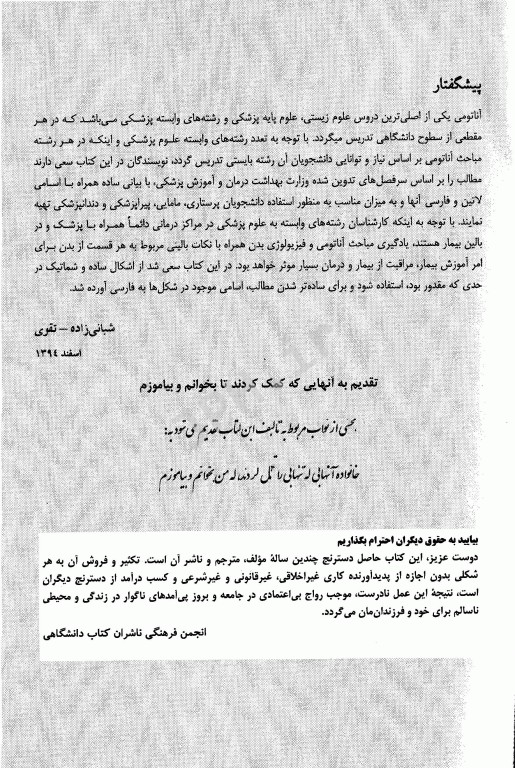 پیشگفتار
آناتومی یکی از اصلی‌ترین دروس علوم زیستی، علوم پایه پزشکی و رشته‌های وابسته پزشکی می‌باشد که در هر
مقطعی از سطوح دانشگاهی تدریس میگردد. با توجه به تعدد رشته‌های وابسته علوم پزشکی و اینکه در هر رشته
مباحث آناتومی بر اساس نیاز و توانایی دانشجویان آن رشته بایستی تدریس گردد، نویسندگان در این کتاب سعی دارند
مطالب را بر اساس سرفصل‌های تدوین شده وزارت بهداشت درمان و آموزش پزشکی، با بیانی ساده همراه با اسامی
لاتین و فارسی آنها و به میزان مناسب به منظور استفاده دانشجویان پرستاری، مامایی، پیراپزشکی و دندانپزشکی تهیه
نمایند. با توجه به اینکه کارشناسان رشته‌های وابسته به علوم پزشکی در مراکز درمانی دائماً همراه با پزشک و در
بالین بیمار هستند، یادگیری مباحث آناتومی و فیزیولوژی بدن همراه با نکات بالینی مربوط به هر قسمت از بدن برای
امر آموزش بیمار، مراقبت از بیمار و درمان بسیار موثر خواهد بود. در این کتاب سعی شد از اشکال ساده و شماتیک در
حدی که مقدور بود، استفاده شود و برای ساده‌تر شدن مطالب، اسامی موجود در شکل‌ها به فارسی آورده شد.
شبانی‌زاده – تقوی
اسفند ۱۳۹۴
تقدیم به آنهایی که کمک کردند تا بخوانم و بیاموزم
بخشی از ثواب مربوط به تالیف این کتاب تقدیم می شود به:
خانواده آنهایی که تنهایی را تحمل کردند، که من بخوانم و بیاموزم
بیایید به حقوق دیگران احترام بگذاریم
دوست عزیز، این کتاب حاصل دسترنج چندین سالهٔ مؤلف، مترجم و ناشر آن است. تکثیر و فروش آن به هر
شکلی بدون اجازه از پدیدآورنده کاری غیراخلاقی، غیرقانونی و غیرشرعی و کسب درآمد از دسترنج دیگران
است، نتیجهٔ این عمل نادرست، موجب رواج بی‌اعتمادی در جامعه و بروز پی‌آمدهای ناگوار در زندگی و محیطی
ناسالم برای خود و فرزندان‌مان می‌گردد.
انجمن فرهنگی ناشران کتاب دانشگاهی